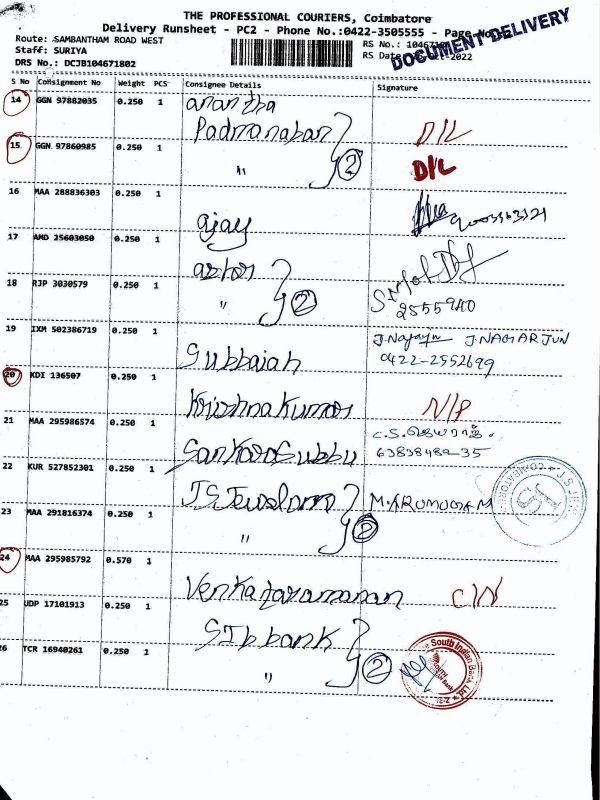 THE PROFESSIONAL COURIERS, Coimbatore
Delivery Runsheet - PC2 - Phone No.:0422-3505555 - Page No.:
Route: SAMBANTHAM ROAD WEST
Staff: SURIYA
DRS No.: DCJB104671802
RS No.: 104671
RS Date
-2022
DOCUMENT DELIVERY
S No Consignment No Weight PCS Consignee Details Signature
14 GGN 97882035 0.250 1 anantha
Padmanaban D/L
15 GGN 97860985 0.250 1 " 2 D/L
16 MAA 288836303 0.250 1 ajay
17 AMD 25603050 0.250 1
18 RJP 3030579 0.250 1 " 2 2555940
19 IXM 502386719 0.250 1 Subbaiah J.NAGARJUN
0422-2552699
20 KDI 136507 0.250 1 Krishna Kumar N/P
21 MAA 295986574 0.250 1 Sankara Subbu C.S.ஜெயராஜ்.
63838489-35
22 KUR 527852301 0.250 1 M.ARUMUGAM
23 MAA 291816374 0.250 1 "
24 MAA 295985792 0.570 1 Venkataramanan C/N
25 UDP 17101913 0.250 1 SIb bank
26 TCR 16940261 0.250 1 " 2
The South Indian Bank Ltd.